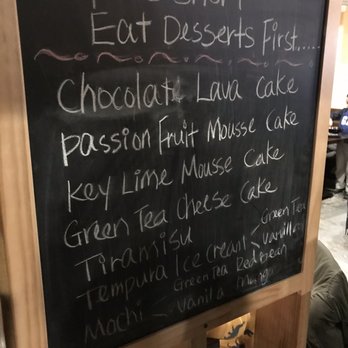 Eat Desserts First.....
Chocolate Lava Cake
Passion Fruit Mousse Cake
Key Lime Mousse Cake
Green Tea Cheese Cake
Tiramisu
Tempura Ice Cream < Green Tea
Vanilla
Mochi < Green Tea Red Bean
Vanilla Mango